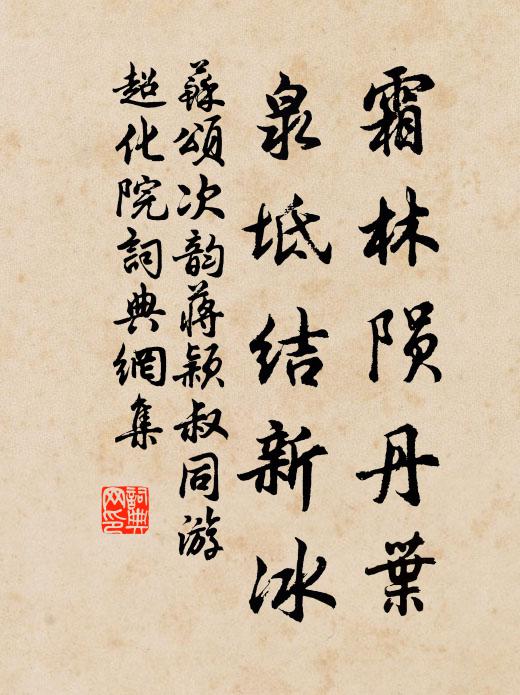 霜林陨丹葉
泉坻结新冰
蘇頌次韵蒋颖叔同游
超化院詞典網集
詞典网印